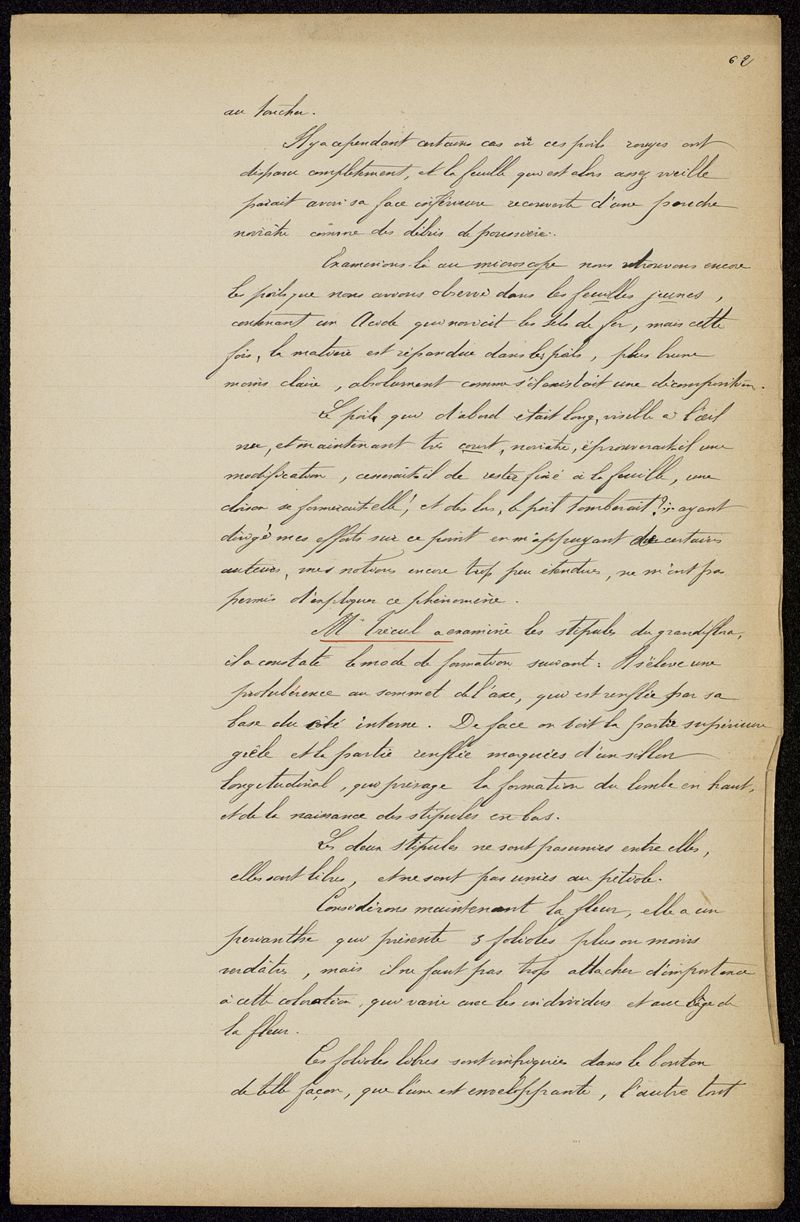 62
au toucher.
Il y a cependant certains cas où ces poils rouges ont
disparu complètement, et la feuille qui est alors assez vieille
parait avoir sa face inférieure recouverte d'une
noirâtre comme des débris de poussière.
Examinons-la au microscope nous retrouvons encore
les poils que nous avons observé dans les feuilles jeunes,
contenant un Acide qui noircit les Sels de fer, mais cette
fois, la matière est répandue dans les poils, plus brune
moins claire, absolument comme s'il existait une décomposition.
Le poil, qui d'abord était long, visible à l'œil
nu, et maintenant très court, noirâtre, éprouverait-il une
modification, cesserait-il de rester fixé à la feuille, une
cloison se formerait elle, et dès lors, le poil tomberait? ayant
dirigé mes efforts sur ce point en m'appuyant de certains
auteurs, mes notions encore trop peu étendues, ne m'ont pas
permis d'expliquer ce phénomène.
Mr Trécul a examiné les stipules du grandiflora,
il a constaté le mode de formation suivant: Il s'élève une
protubérence au sommet de l'axe, qui est renflée par sa
base du côté interne. De face on voit la partie supérieure
grêle et la partie renflée marquées d'un sillon
longitudinal, qui présage la formation du limbe en haut,
et de la naissance des stipules en bas.
Les deux stipules ne sont pas unies entre elles,
elles sont libres, et ne sont pas unies au pétiole.
Considérons maintenant la fleur, elle a un
périanthe qui présente 3 folioles plus ou moins
verdâtres, mais il ne faut pas trop attacher d'importance
à cette coloration, qui varie avec les individus et avec l'âge de
la fleur.
Ces folioles libres sont imbriquées dans le bouton
de telle façon, que l'une est enveloppante, l'autre tout